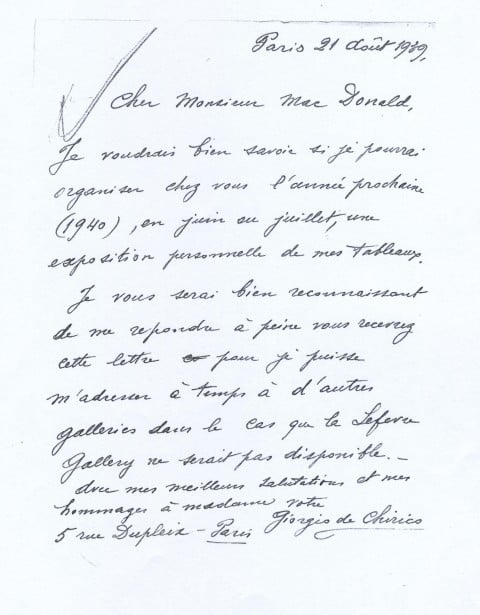 Paris 21 août 1939,
Cher Monsieur Mac Donald,
Je voudrais bien savoir si je pourrai
organiser chez vous l'année prochaine
(1940), en juin ou juillet, une
exposition personnelle de mes tableaux.
Je vous serai bien reconnaissant
de me repondre à peine vous recevrez
cette lettre pour je puisse
m'adresser à temps à d'autres
galleries dans le cas que la Lefevre
Gallery ne serait pas disponible. –
avec mes meilleurs salutations et mes
hommages à madame votre
Giorgio de Chirico
5 rue Dupleix – Paris